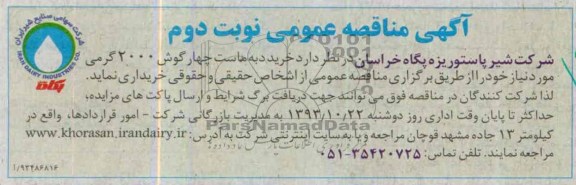 آگهی مناقصه عمومی نوبت دوم
شرکت سهامی صنایع شیر ایران
IRAN DAIRY INDUSTRIES CO.
پگاه
شرکت شیر پاستوریزه پگاه خراسان در نظر دارد خرید دبه ماست چهار گوش ۲۰۰۰ گرمی
مورد نیاز خود را از طریق برگزاری مناقصه عمومی از اشخاص حقیقی و حقوقی خریداری نماید.
لذا شرکت کنندگان در مناقصه فوق می توانند جهت دریافت برگ شرایط و ارسال پاکت های مزایده،
حداکثر تا پایان وقت اداری روز دوشنبه ۱۳۹۳/۱۰/۲۲ به مدیریت بازرگانی شرکت - امور قراردادها، واقع در
کیلومتر ۱۳ جاده مشهد قوچان مراجعه و یا به سایت اینترنتی شرکت به آدرس: www.khorasan.irandairy.ir
مراجعه نمایند. تلفن تماس: ۳۵۴۲۰۷۲۵-۰۵۱
۱/۹۳۴۸۶۸۱۶
ParsNamadData